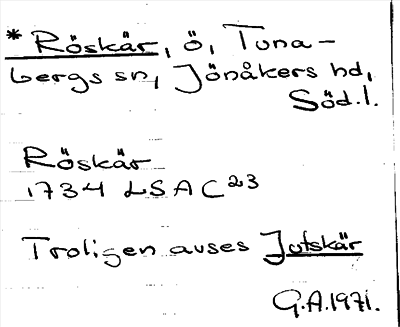 * Röskär, ö, Tuna-
bergs sn, Jönåkers hd,
Söd.l.
Röskär
1734 LSA C23
Troligen avses Jutskär
G.A.1971.